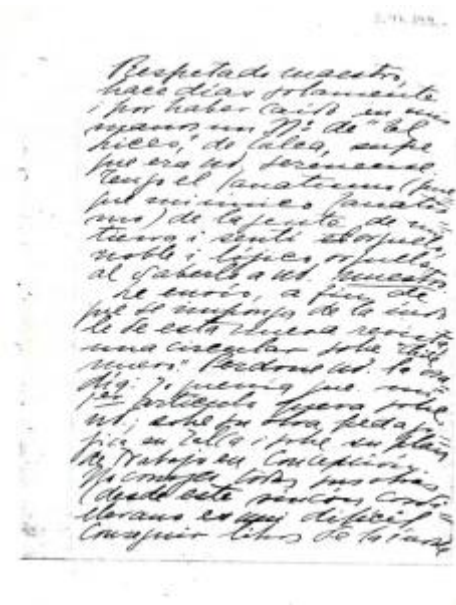 Respetado maestro,
hace días solamente
i por haber caído en mis
manos un Nº de
de Talca, supe
que era Ud. serenense.
Tengo el fanatismo (
que mi único fanatis-
mo) de la gente de mi
tierra i sentí el orgullo,
noble i lójico orgullo,
al saberlo a Ud. nuestro.
Le envío, a fin de
que se imponga de la
de esta nueva revista,
una circular sobre
Perdone Ud. la
Yo quería que mi
artículo fuera sobre
Ud., sobre su obra
en Talca i sobre su Plan
de Trabajo en Concepción.
No conozco todas sus obras
(desde este rincón cordi-
llerano es mui difícil
conseguir libros de la